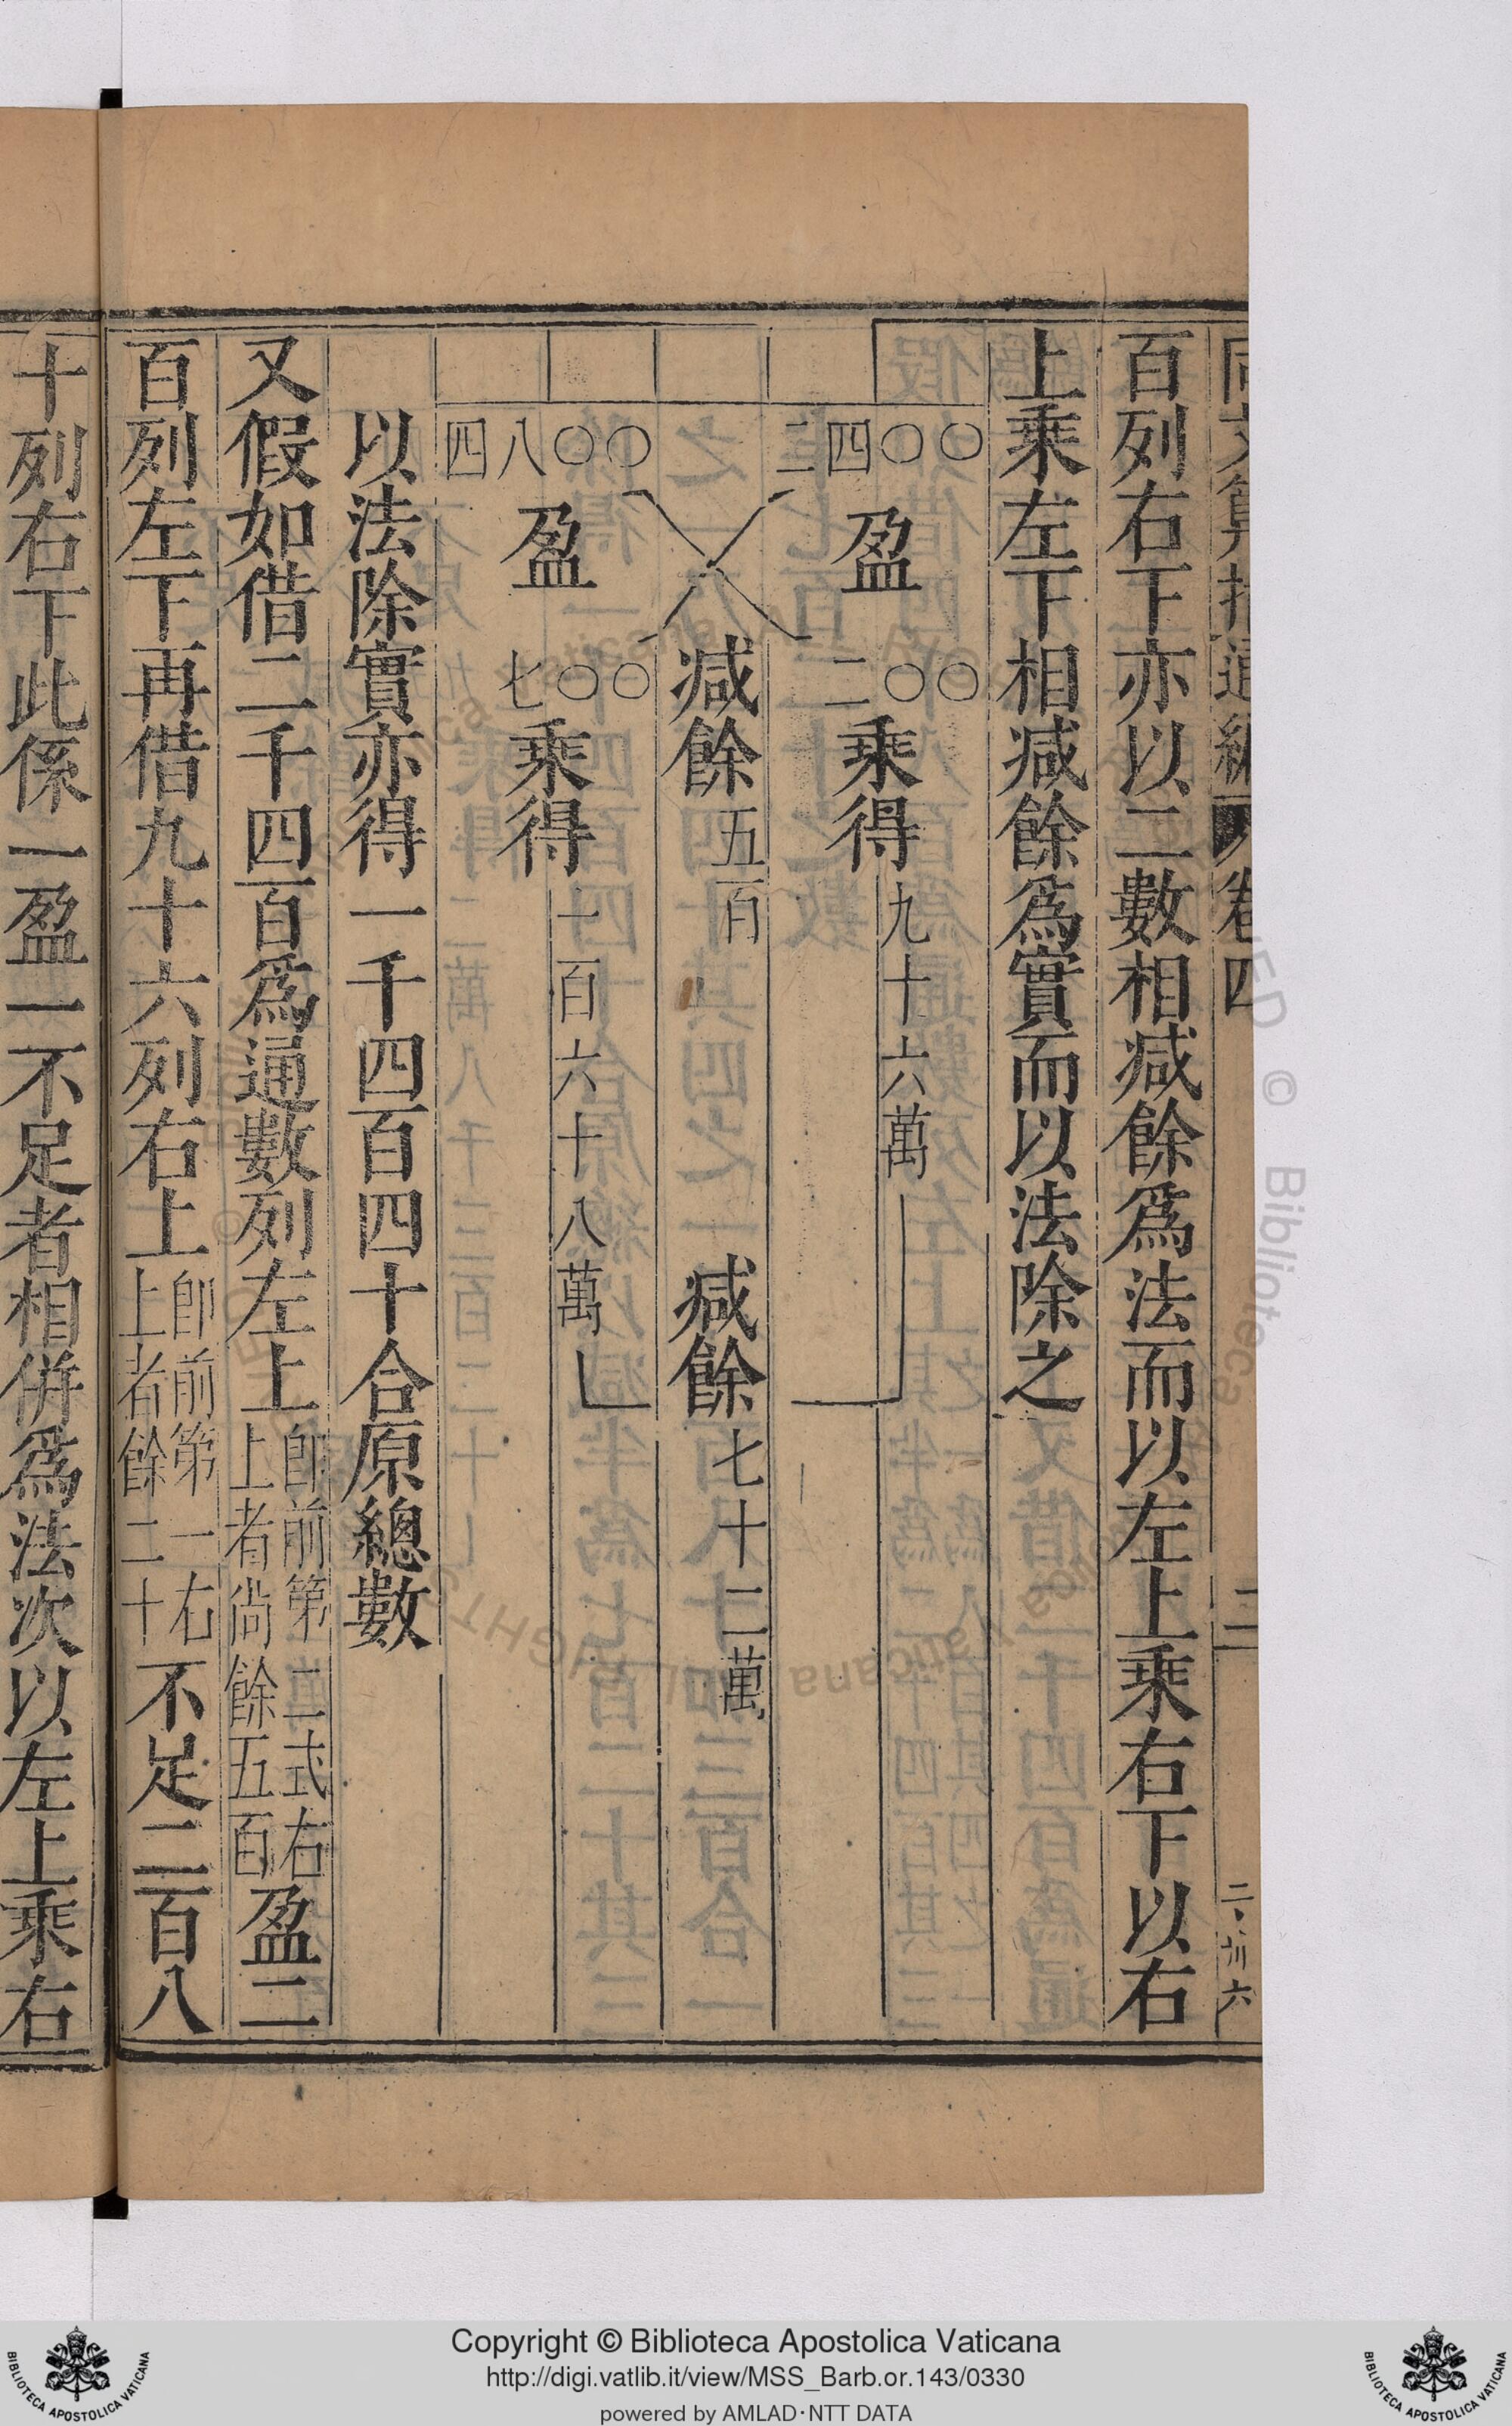 同文算指通編 卷四 二 二 卅六
百列右下亦以二數相減餘爲法而以左上乘右下以右
上乘左下相減餘爲實而以法除之
二四〇〇 盈 二〇〇 乘得 九十六萬
減餘 五百 減餘 七十二萬
四八〇〇 盈 七〇〇 乘得 一百六十八萬
以法除實亦得一千四百四十合原總數
又假如借二千四百爲通數列左上 卽前第二式右上者尚餘五百 盈二
百列左下再借九十六列右上 卽前第一右上者餘二十 不足二百八
十列右下此係一盈一不足者相併爲法次以左上乘右
Copyright © Biblioteca Apostolica Vaticana
http://digi.vatlib.it/view/MSS_Barb.or.143/0330
powered by AMLAD·NTT DATA
BIBLIOTECA APOSTOLICA VATICANA
BIBLIOTECA APOSTOLICA VATICANA